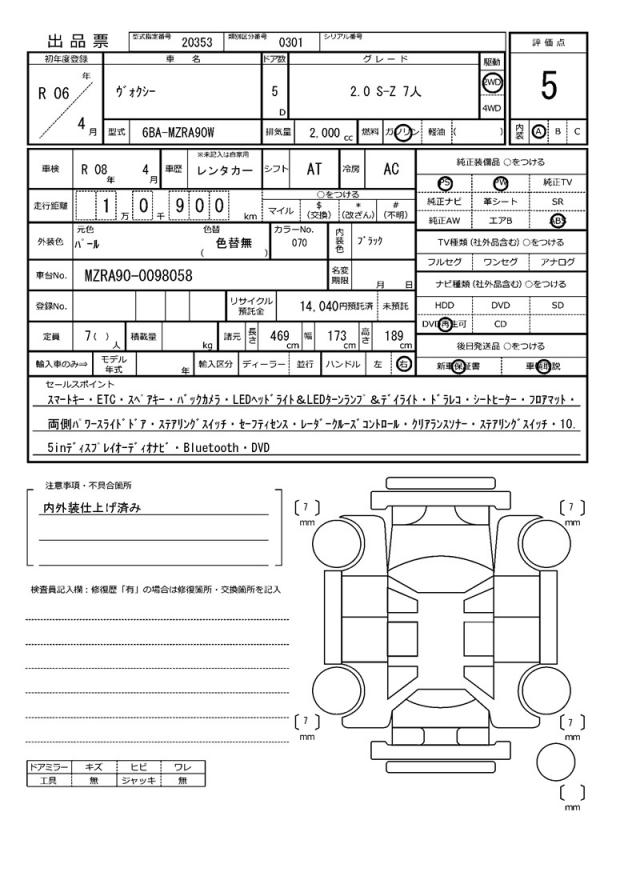 出品票 型式指定番号 20353 類別区分番号 0301 シリアル番号
初年度登録 車名 ドア数 グレード 駆動 評価点
R 06 年 4 月 ヴォクシー 5 D 2.0 S-Z 7人 2WD 4WD 5
型式 6BA-MZRA90W 排気量 2,000 cc 燃料 ガソリン 軽油 ( ) 内装 A B C
車検 R 08 年 4 月 車歴 ※未記入は自家用 レンタカー シフト AT 冷房 AC 純正装備品 ○をつける
PS PW 純正TV
走行距離 1 万 0 千 9 0 0 km ○をつける マイル $ (交換) * (改ざん) # (不明) 純正ナビ 革シート SR
純正AW エアB ABS
外装色 元色 パール 色替 色替無 ( ) カラーNo. 070 内装色 ブラック TV種類 (社外品含む) ○をつける
フルセグ ワンセグ アナログ
車台No. MZRA90-0098058 名変期限 月 日 ナビ種類 (社外品含む) ○をつける
登録No. リサイクル預託金 14,040円預託済 未預託 HDD DVD SD
DVD再生可 CD
定員 7( ) 人 積載量 kg 諸元 長さ 469 cm 幅 173 cm 高さ 189 cm 後日発送品 ○をつける
輸入車のみ⇒ モデル年式 年 輸入区分 ディーラー 並行 ハンドル 左 右 新車保証書 車輌取説
セールスポイント
スマートキー・ETC・スペアキー・バックカメラ・LEDヘッドライト&LEDターンランプ&デイライト・ドラレコ・シートヒーター・フロアマット・
両側パワースライドドア・ステアリングスイッチ・セーフティセンス・レーダークルーズコントロール・クリアランスソナー・ステアリングスイッチ・10.
5inディスプレイオーディオナビ・Bluetooth・DVD
注意事項・不具合箇所
内外装仕上げ済み
検査員記入欄：修復歴「有」の場合は修復箇所・交換箇所を記入
[ 7 ] mm
[ 7 ] mm
[ 7 ] mm
[ 7 ] mm
[ ] mm
ドアミラー キズ ヒビ ワレ
工具 無 ジャッキ 無